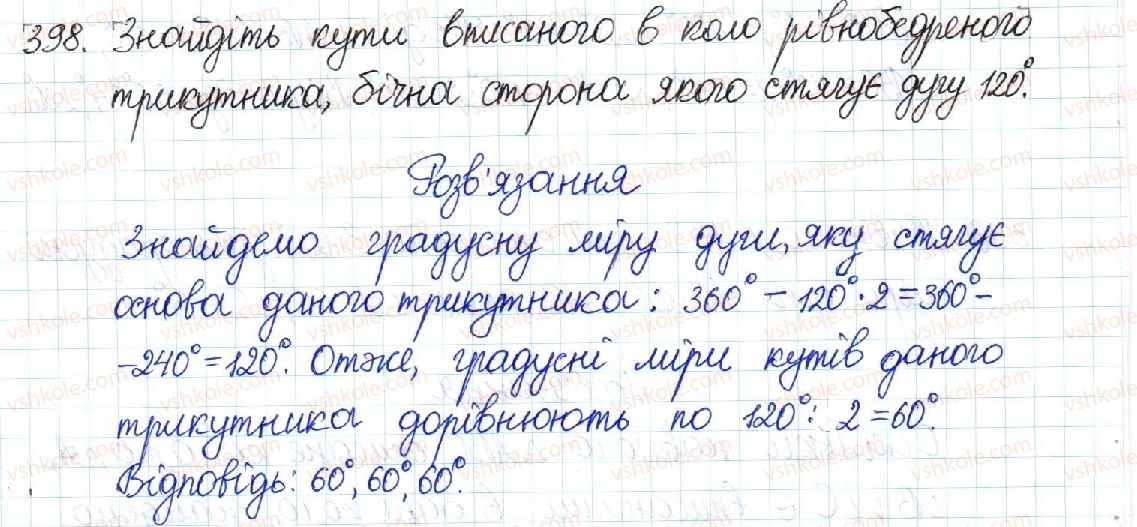 398. Знайдіть кути вписаного в коло рівнобедреного
трикутника, бічна сторона якого стягує дугу 120°.
Розв'язання
Знайдемо градусну міру дуги, яку стягує
основа даного трикутника: 360° - 120° · 2 = 360° -
- 240° = 120°. Отже, градусні міри кутів даного
трикутника дорівнюють по 120° : 2 = 60°.
Відповідь: 60°, 60°, 60°.